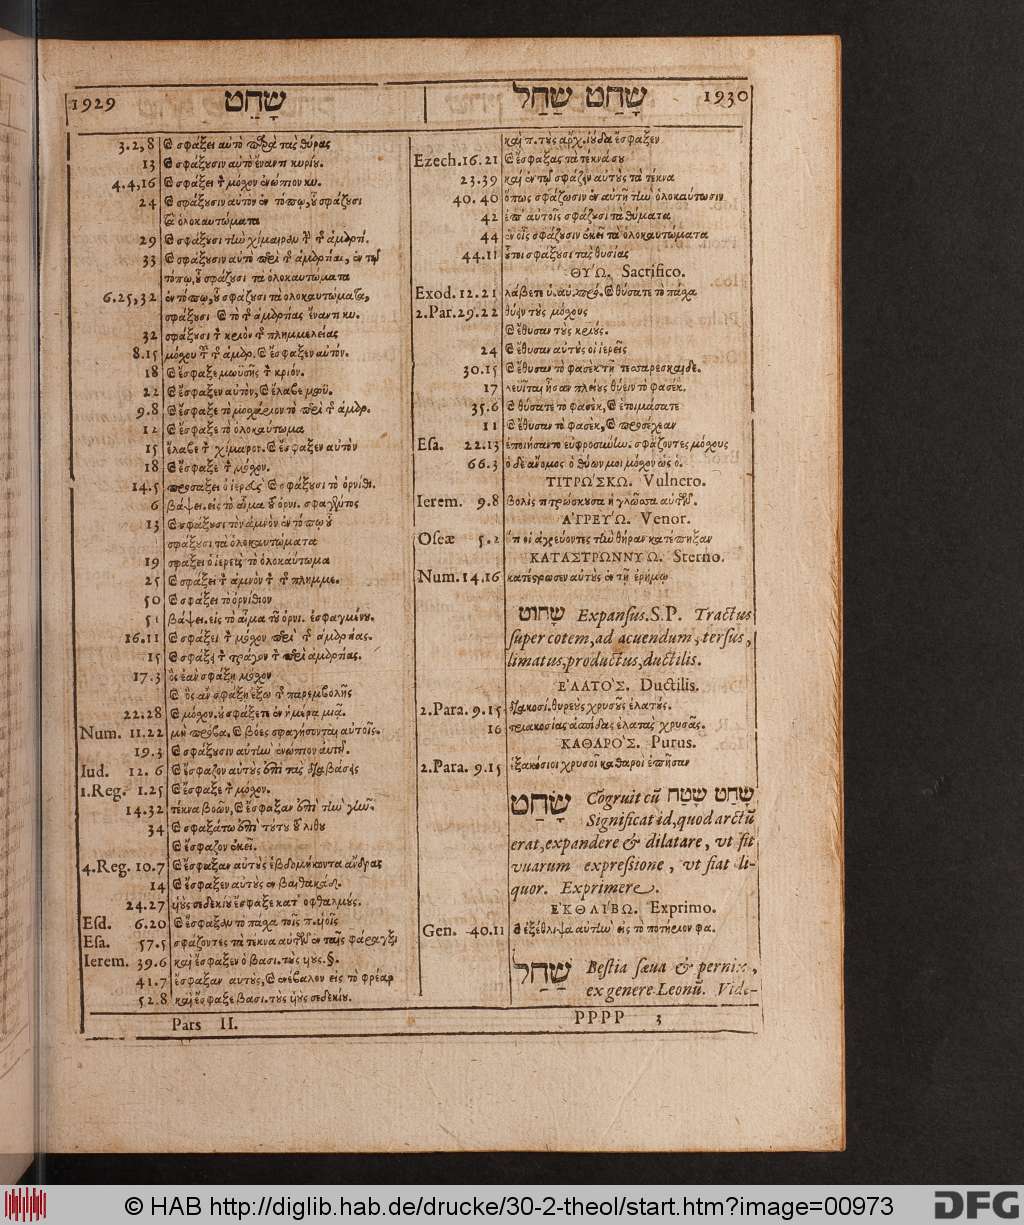 1929 שָׁחַט
3.2,8 ϗ σφάξει αὐτὸ παρὰ τὰς θύρας
13 ϗ σφάξουσιν αὐτὸ ἔναντι κυρίου.
4.4,16 ϗ σφάξει τ μόχον ἐνώπιον κυ.
24 ϗ σφάξουσιν αὐτὸν ἐν τόπῳ, οὗ σφάζουσι
τὰ ὁλοκαυτώματα
29 ϗ σφάξουσι τὴν χίμαιραν
33 ϗ σφάξουσιν αὐτὸ
τόπῳ, οὗ σφάζουσι τὰ ὁλοκαυτώματα
6.25,32 ἐν τόπῳ, οὗ σφάζουσι τὰ ὁλοκαυτώματα,
σφάξουσι ἔναντι κυ.
32 σφάξουσι τ κριὸν τ πλημμελείας
8.15 μόχου ϗ ἔσφαξεν αὐτόν.
18 ϗ ἔσφαξε μωϋσῆς τ κριόν.
22 ϗ ἔσφαξεν αὐτὸν, ϗ ἔλαβε
9.8 ϗ ἔσφαξε τὸ μοχάριον τὸ
12 ϗ ἔσφαξε τὸ ὁλοκαύτωμα
15 ἔλαβε τ χίμαρον. ϗ ἔσφαξεν αὐτὸν
18 ϗ ἔσφαξε τ μόχον.
14.5 προσάξει ὁ ἱερεὺς ϗ σφάξουσι τὸ ὀρνίθι.
6 βάψει. εἰς τὸ αἷμα τοῦ ὀρνι. σφαγέντος
13 ϗ σφάξουσι τὸν ἀμνὸν ἐν τόπῳ οὗ
σφάξουσι τὰ ὁλοκαυτώματα
19 σφάξει ὁ ἱερεὺς τὸ ὁλοκαύτωμα
25 ϗ σφάξει τ ἀμνὸν τ πλημμε.
50 ϗ σφάξει τὸ ὀρνίθιον
51 βάψει. εἰς τὸ αἷμα τοῦ ὀρνι. ἐσφαγμένου.
16.11 ϗ σφάξει τ μόχον περὶ τ ἁμαρτίας.
15 ϗ σφάξει τ τράγον τ περὶ ἁμαρτίας.
17.3 ὃς ἐὰν σφάξῃ μόχον
ϗ ὃς ἂν σφάξῃ ἔξω τ παρεμβολῆς
22.28 ϗ μόχον. οὐ σφάξετε ἐν ἡμέρᾳ μιᾷ.
Num. 11.22 μὴ πρόβα. ϗ βόες σφαγήσονται αὐτοῖς.
19.3 ϗ σφάξουσιν αὐτὴν ἐνώπιον αὐτοῦ.
Iud. 12.6 ϗ ἔσφαζον αὐτοὺς ἐπὶ τὰς διαβάσεις
1.Reg. 1.25 ϗ ἔσφαξε τ μόχον.
14.32 τέκνα βοῶν, ϗ ἔσφαξαν ἐπὶ τὴν γῆν.
34 ϗ σφαξάτω ἐπὶ τούτου τοῦ λίθου
ϗ ἔσφαζον ἐκεῖ.
4.Reg. 10.7 ϗ ἔσφαξαν αὐτοὺς ἑβδομήκοντα ἄνδρας
14 ϗ ἔσφαξεν αὐτοὺς ἐν βαιθακάδ.
24.27 υἱοὺς σεδεκίου ἔσφαξε κατ' ὀφθαλμούς.
Esd. 6.20 ϗ ἔσφαξαν τὸ πάσχα τοῖς π. υἱοῖς
Esa. 57.5 σφάζοντες τὰ τέκνα αὐτῶν ἐν ταῖς φάραγξι
Ierem. 39.6 καὶ ἔσφαξεν ὁ βασι. τοὺς υἱους. §.
41.7 ἔσφαξαν αὐτοὺς, ϗ ἐνέβαλον εἰς τὸ φρέαρ
52.8 καὶ ἔσφαξε βασι. τοὺς υἱοὺς σεδεκίου.
Pars II.
שָׁחַט שַׁחַל 1930
καὶ π. τοὺς ἄρχ. ἰούδα ἔσφαξεν
Ezech. 16.21 ϗ ἔσφαξας τὰ τέκνα σου
23.39 καὶ ἐν τῷ σφάζειν αὐτοὺς τὰ τέκνα
40.40 ὅπως σφάζωσιν ἐν αὐτῇ τὴν ὁλοκαύτωσιν
42 ἐπ' αὐτοῖς σφάζουσι τὰ θύματα
44 ἐν οἷς σφάζουσιν ἐκεῖ τὰ ὁλοκαυτώματα
44.11 οὗτοι σφάξουσι τὰς θυσίας
ΘΥ΄Ω. Sacrifico.
Exod. 12.21 λάβετε ὑ. αὐ. πρό. ϗ θύσατε τὸ πάσχα
2.Par. 29.22 θύειν τοὺς μόχους
ϗ ἔθυσαν τοὺς κριούς.
24 ϗ ἔθυσαν αὐτοὺς οἱ ἱερεῖς
30.15 ϗ ἔθυσαν τὸ φασὲκ τῇ τεσσαρεσκαιδε.
17 λευῖται ἦσαν πλείους θύειν τὸ φασέκ.
35.6 ϗ θύσατε τὸ φασὲκ, ϗ ἑτοιμάσατε
11 ϗ ἔθυσαν τὸ φασὲκ, ϗ προσέχεαν
Esa. 22.13 ἐποιήσαντο εὐφροσύνην. σφάζοντες μόχους
66.3 ὁ δὲ ἄνομος ὁ θύων μοι μόχον ὡς ὁ.
ΤΙΤΡΩ΄ΣΚΩ. Vulnero.
Ierem. 9.8 βολὶς τιτρώσκουσα ἡ γλῶσσα αὐτῶν.
ΑΓΡΕΥ΄Ω. Venor.
Oseæ 5.2 ὅτι οἱ ἀγρεύοντες τὴν θήραν κατέπηξαν
ΚΑΤΑΣΤΡΩΝΝΥ΄Ω. Sterno.
Num. 14.16 κατέστρωσεν αὐτοὺς ἐν τῇ ἐρήμῳ
שָׁחוּט Expansus. S.P. Tractus
super cotem, ad acuendum, tersus,
limatus, productus, ductilis.
ἘΛΑΤΟ΄Σ. Ductilis.
2.Para. 9.15 διακοσί. θυρεοὺς χρυσοῦς ἐλατούς.
16 τριακοσίας ἀσπίδας ἐλατὰς χρυσᾶς.
ΚΑΘΑΡΟ΄Σ. Purus.
2.Para. 9.15 ἑξακόσιοι χρυσοῖ καθαροὶ ἐπῆσαν
שָׂחַט Cōgruit cū שָׁטַח שָׁחַט
Significat id, quod arctū
erat, expandere & dilatare, vt fit
vuarum expressione, vt fiat li-
quor. Exprimere.
ἘΚΘΛΙ΄ΒΩ. Exprimo.
Gen. 40.11 ϗ ἐξέθλιψα αὐτὴν εἰς τὸ ποτήριον φα.
שַׁחַל Bestia sæua & pernix,
ex genere Leonū. Vide-
PPPP 3
© HAB http://diglib.hab.de/drucke/30-2-theol/start.htm?image=00973 DFG